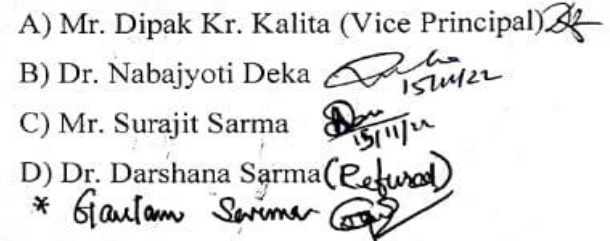 A) Mr. Dipak Kr. Kalita (Vice Principal)
B) Dr. Nabajyoti Deka 15/11/22
C) Mr. Surajit Sarma 15/11/22
D) Dr. Darshana Sarma (Refused)
* Gautam Sarma